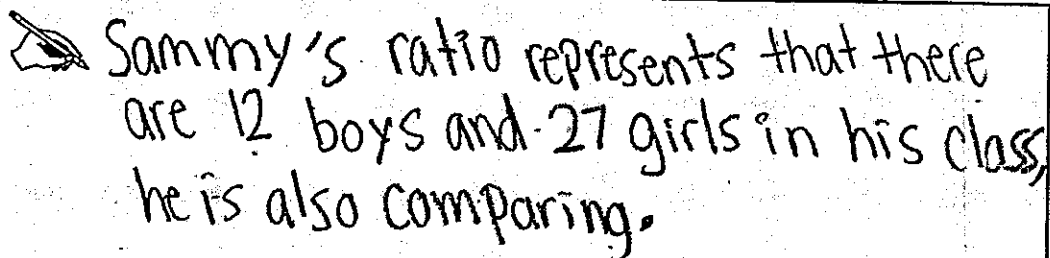 Sammy's ratio represents that there
are 12 boys and 27 girls in his class,
he is also comparing.